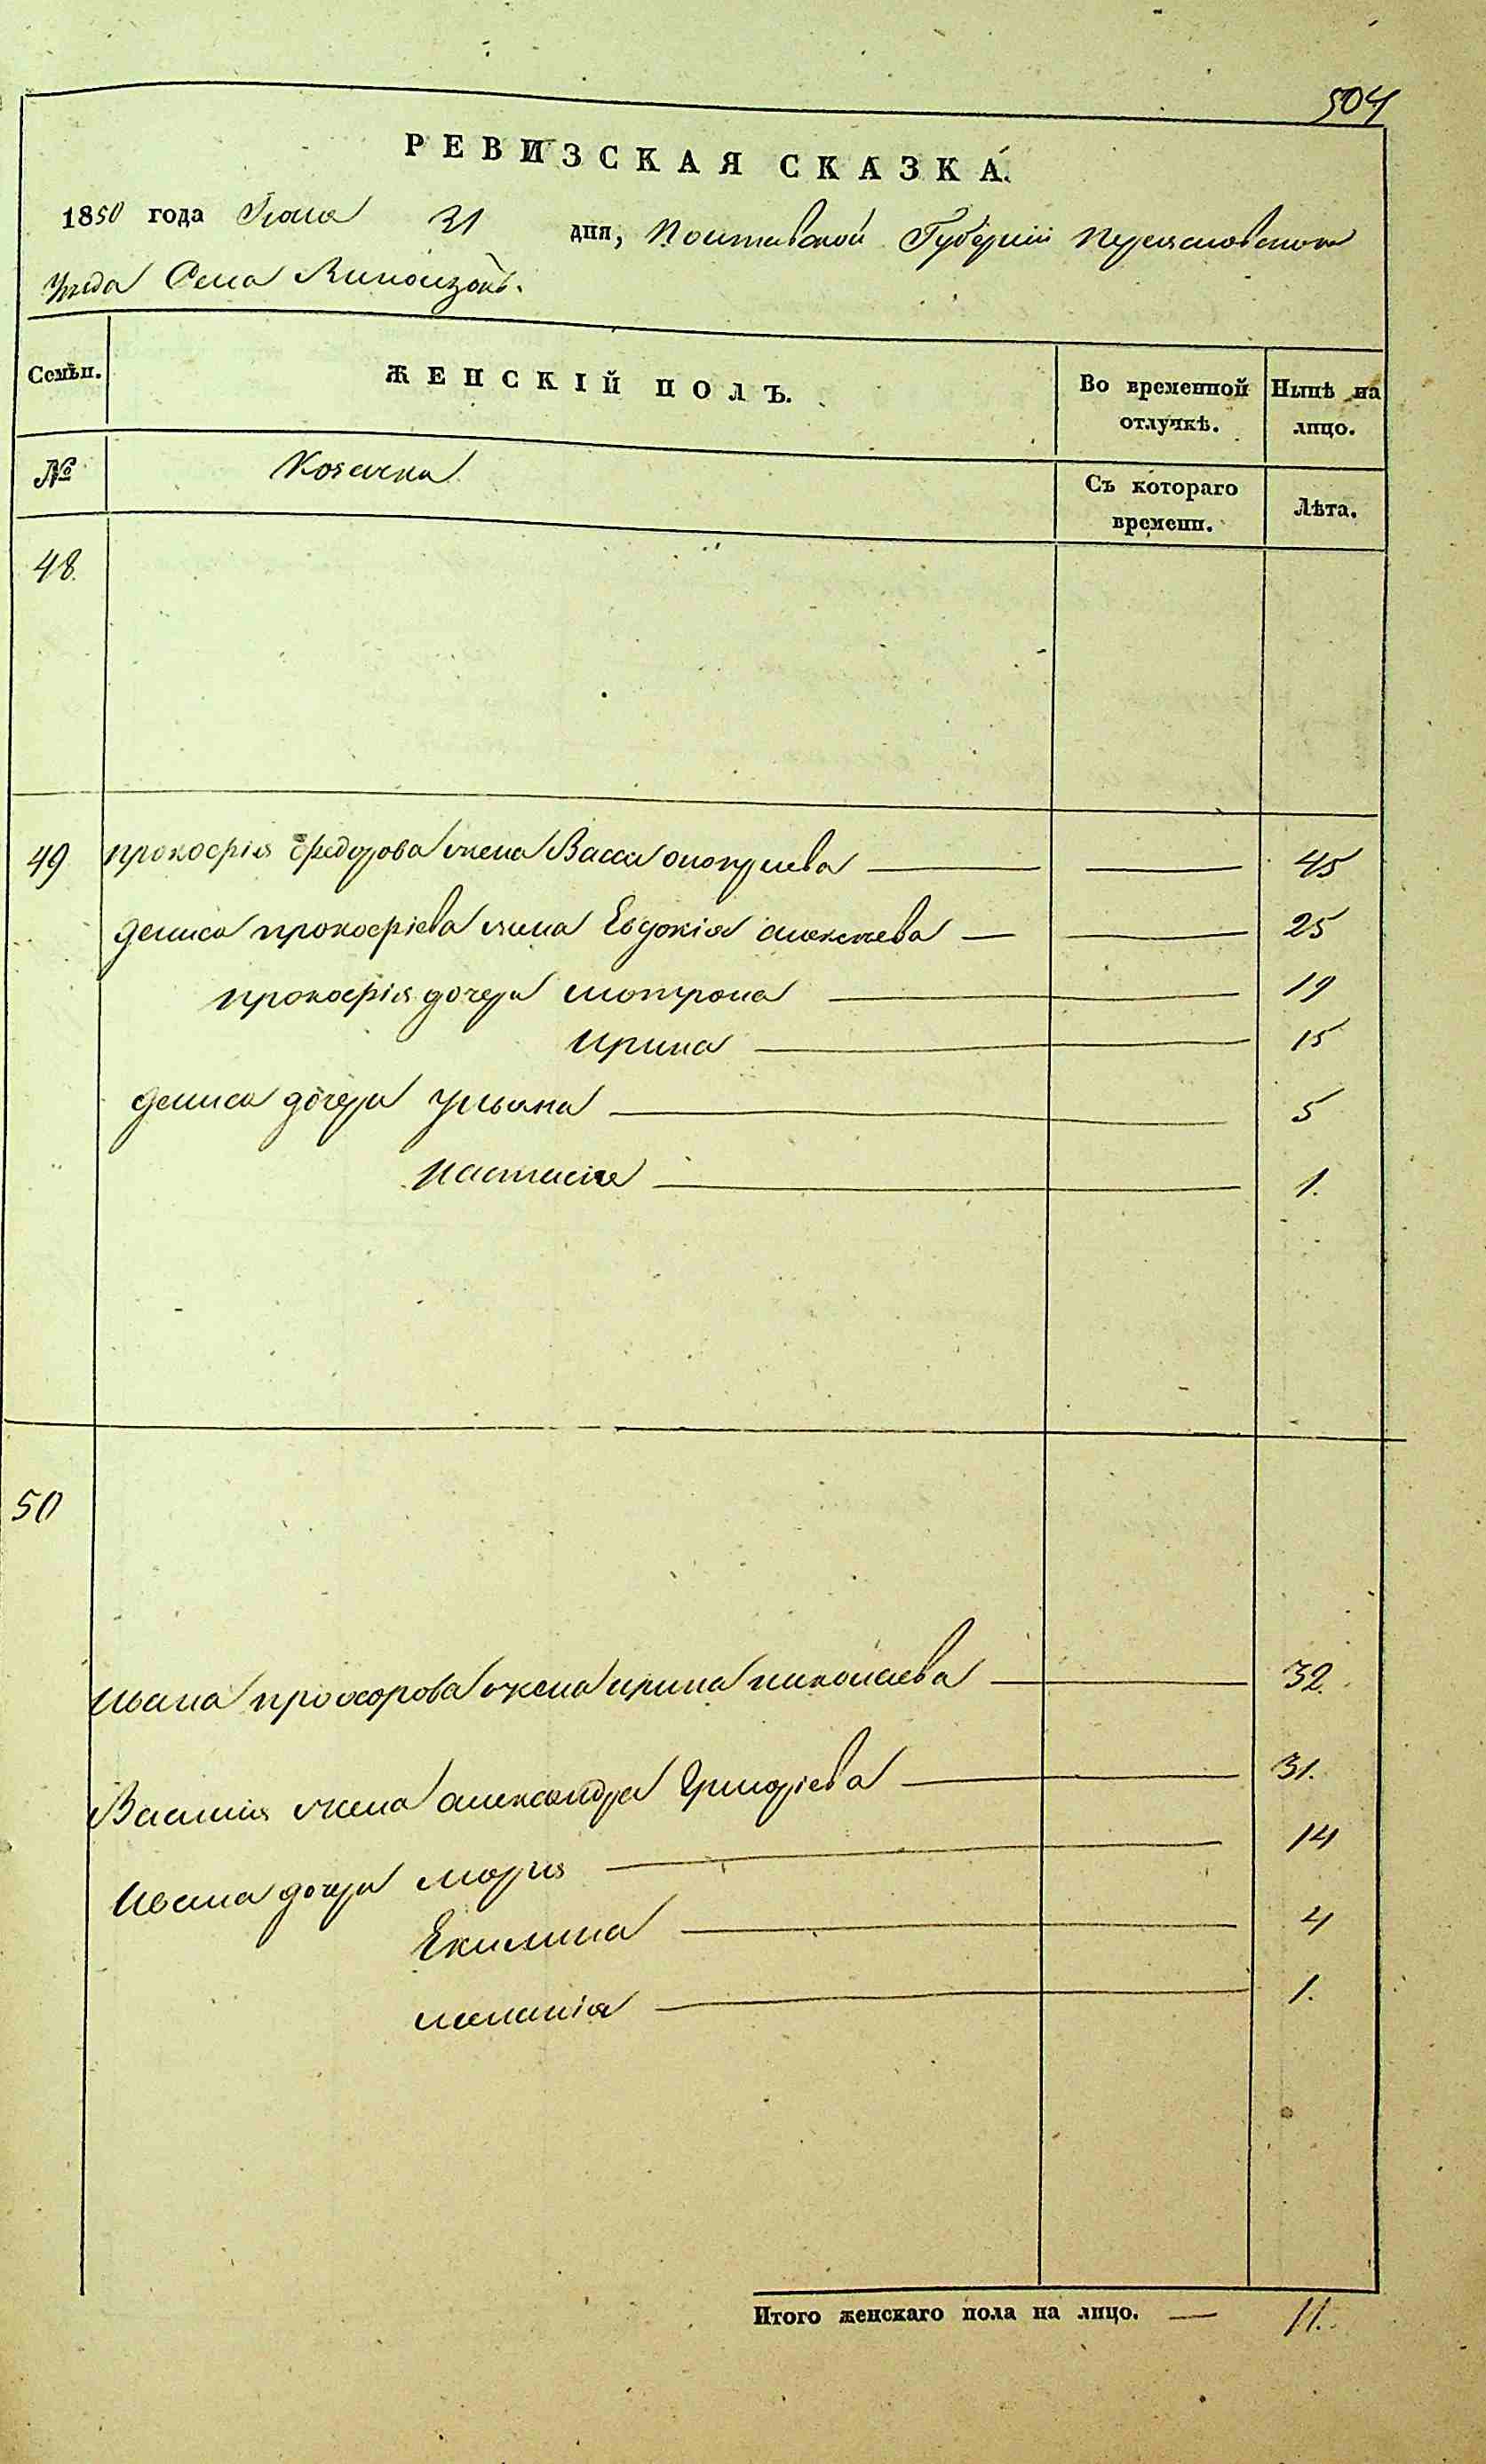 504
РЕВИЗСКАЯ СКАЗКА.
1850 года 31 дня, Полтавской Губернии Переяславского
Уезда Села
Семьи. ЖЕНСКІЙ ПОЛЪ. Во временной отлучкѣ. Нынѣ на лицо.
№ Козачки Съ котораго времени. Лѣта.
48.
49 прокофія федорова жена Васса 45
дениса прокофіева жена Евдокія алексеева 25
прокофія дочери мотрона 19
ирина 15
дениса дочери ульяна 5
настасия 1.
50
ивана прохорова жена ирина николаева 32.
Василия жена александра Григоріева 31.
Ивана дочери мария 14
Екилина 4
меланія 1.
Итого женскаго пола на лицо. — 11.